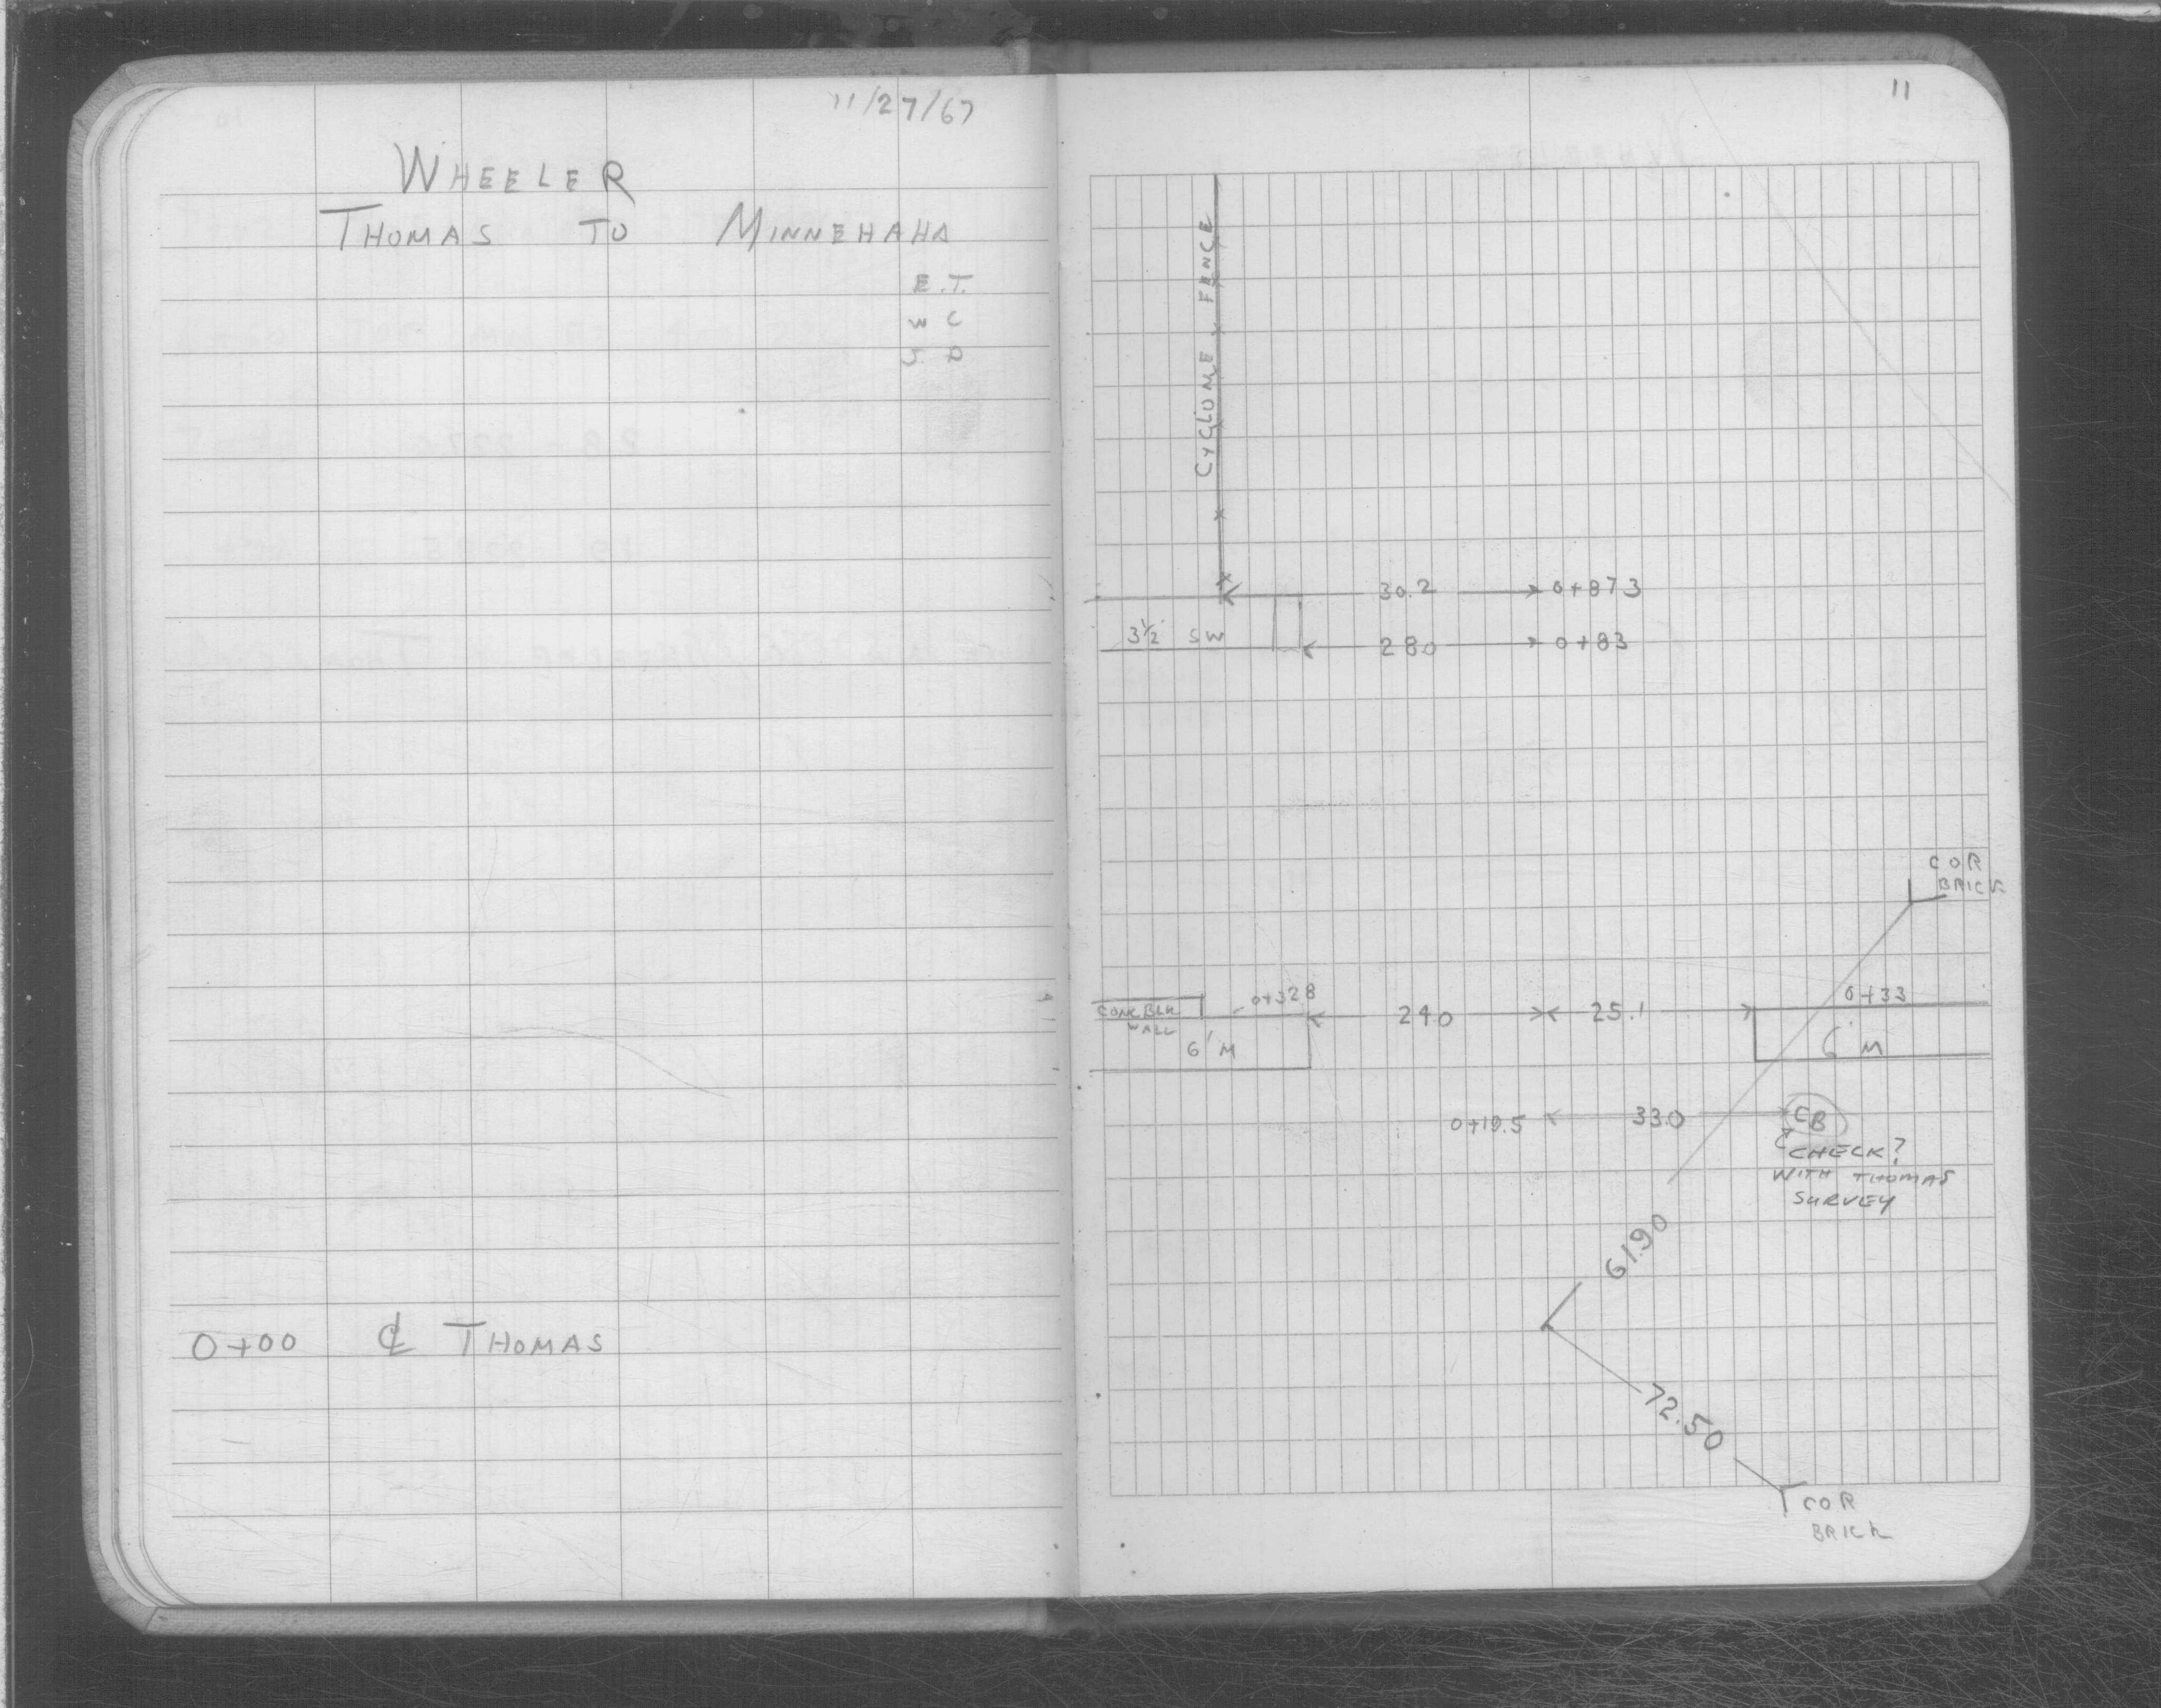 11/27/67
WHEELER
THOMAS TO MINNEHAHA
E.T.
W C
J. D
0+00 ℄ THOMAS
11
CYCLONE FENCE
30.2 0+873
3½' SW 280 0+83
COR
BRICK
CONC BLK 0+328 240 25.1 0+33
WALL
6' M 6' M
0+19.5 33.0 CB
CHECK?
WITH THOMAS
SURVEY
61.90
72.50
COR
BRICK